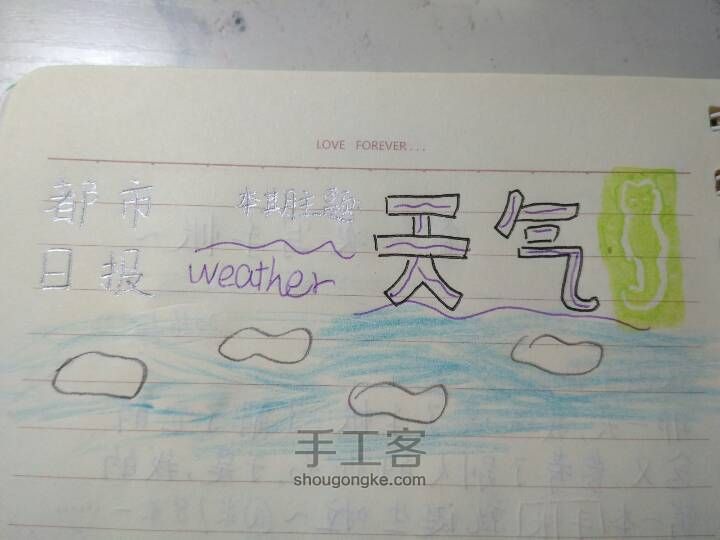 LOVE FOREVER...
都市 本期主题 天气
日报 weather
手工客
shougongke.com